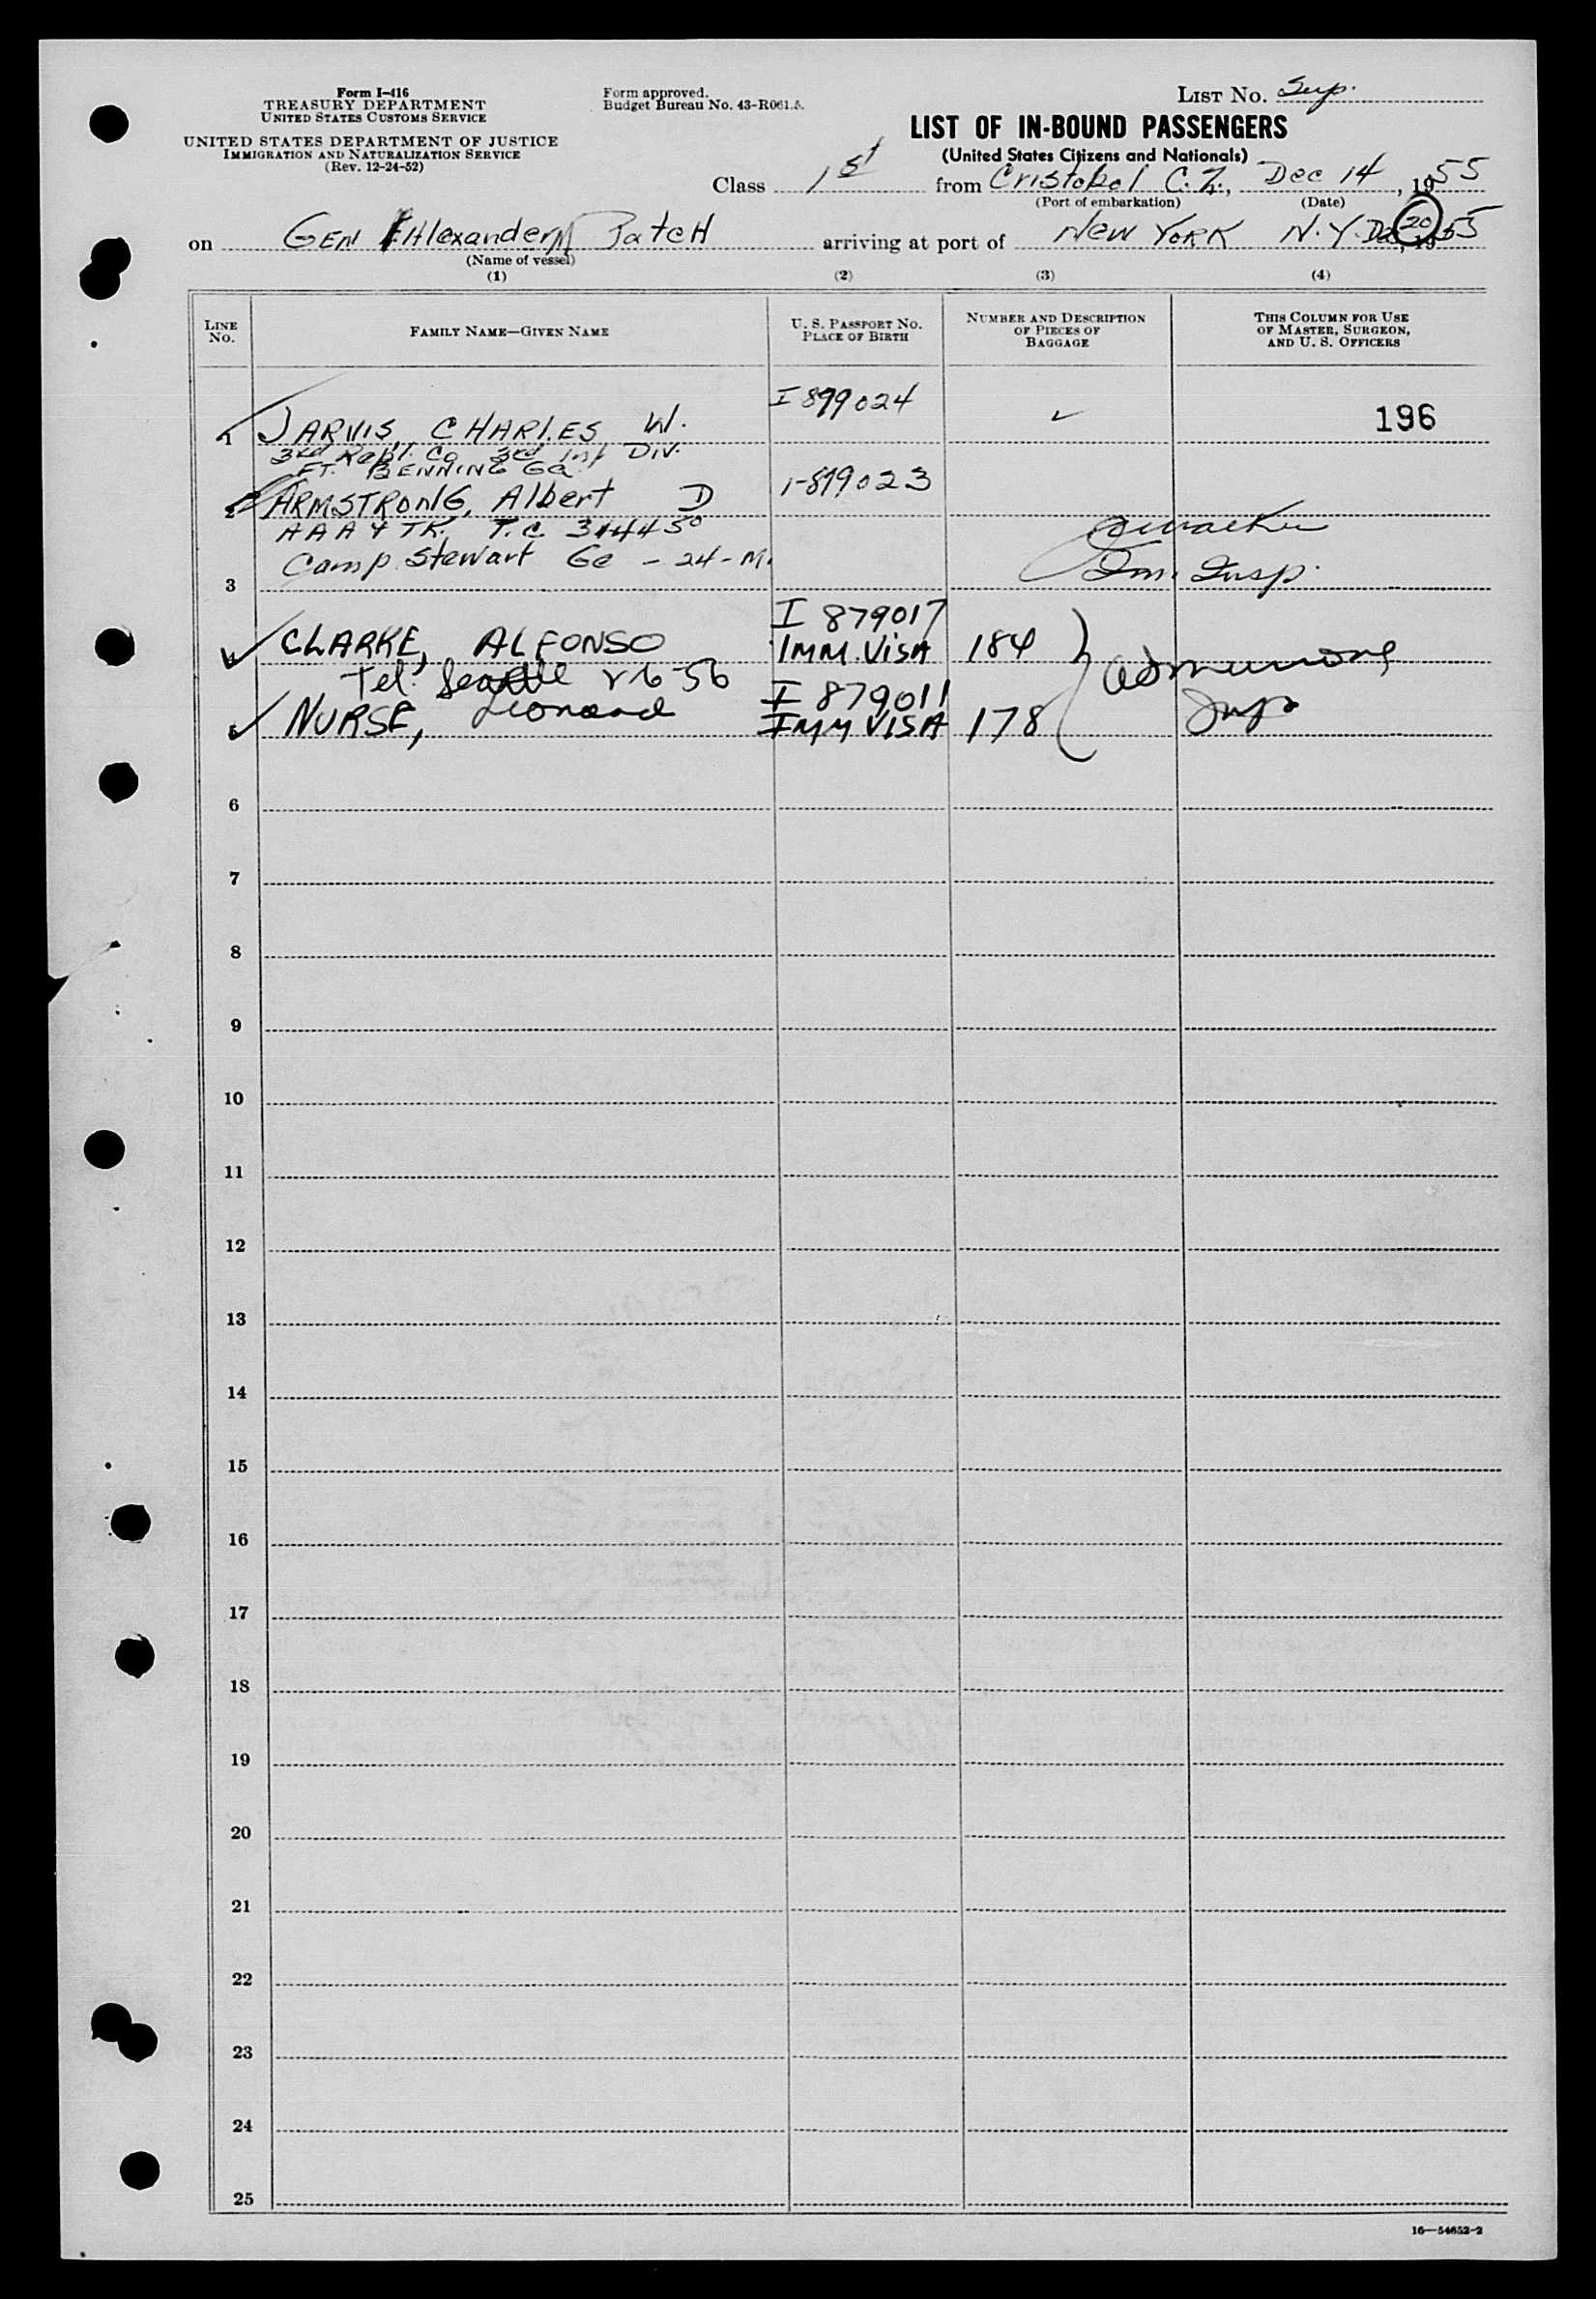 Form I-416
TREASURY DEPARTMENT
UNITED STATES CUSTOMS SERVICE
UNITED STATES DEPARTMENT OF JUSTICE
IMMIGRATION AND NATURALIZATION SERVICE
(Rev. 12-24-52)
Form approved.
Budget Bureau No. 43-R061.5.
LIST NO. Sup.
LIST OF IN-BOUND PASSENGERS
(United States Citizens and Nationals)
Class 1st from Cristobal C.Z., Dec 14, 1955
(Port of embarkation) (Date)
on GEN Alexander M Patch arriving at port of New York N.Y. Dec 20, 1955
(Name of vessel)
(1) (2) (3) (4)
LINE NO. FAMILY NAME—GIVEN NAME U. S. PASSPORT NO. PLACE OF BIRTH NUMBER AND DESCRIPTION OF PIECES OF BAGGAGE THIS COLUMN FOR USE OF MASTER, SURGEON, AND U. S. OFFICERS
I 899024
1 JARVIS, CHARLES W. ✓ 196
3rd Repl. Co 3rd Inf Div.
FT. BENNING Ga
2 ARMSTRONG, Albert D 1-879023
AAA & TK. T.C. 3444 50
Camp Stewart Ga - 24-M.
3 Imm. Insp.
I 879017
4 CLARKE, ALFONSO IMM. VISA 184
Tel. Seattle 2-6-56
I 879011
5 NURSE, Leonard IMM VISA 178
6
7
8
9
10
11
12
13
14
15
16
17
18
19
20
21
22
23
24
25
16—54652-2